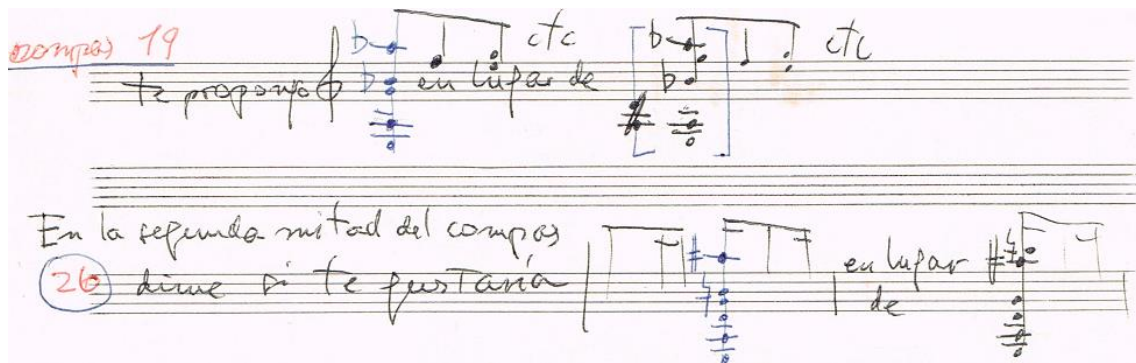 compás 19
te propongo en lugar de
etc etc
En la segunda mitad del compás
26 dime si te gustaría en lugar
de